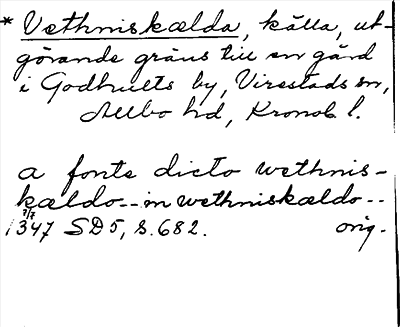 * Vethniskælda, källa, ut-
görande gräns till en gård
i Godhults by, Virestads sn,
Allbo hd, Kronob. l.
a fonte dicto wethnis-
kældo -- in wethniskældo --
7/7
1347 SD 5, s. 682. orig.